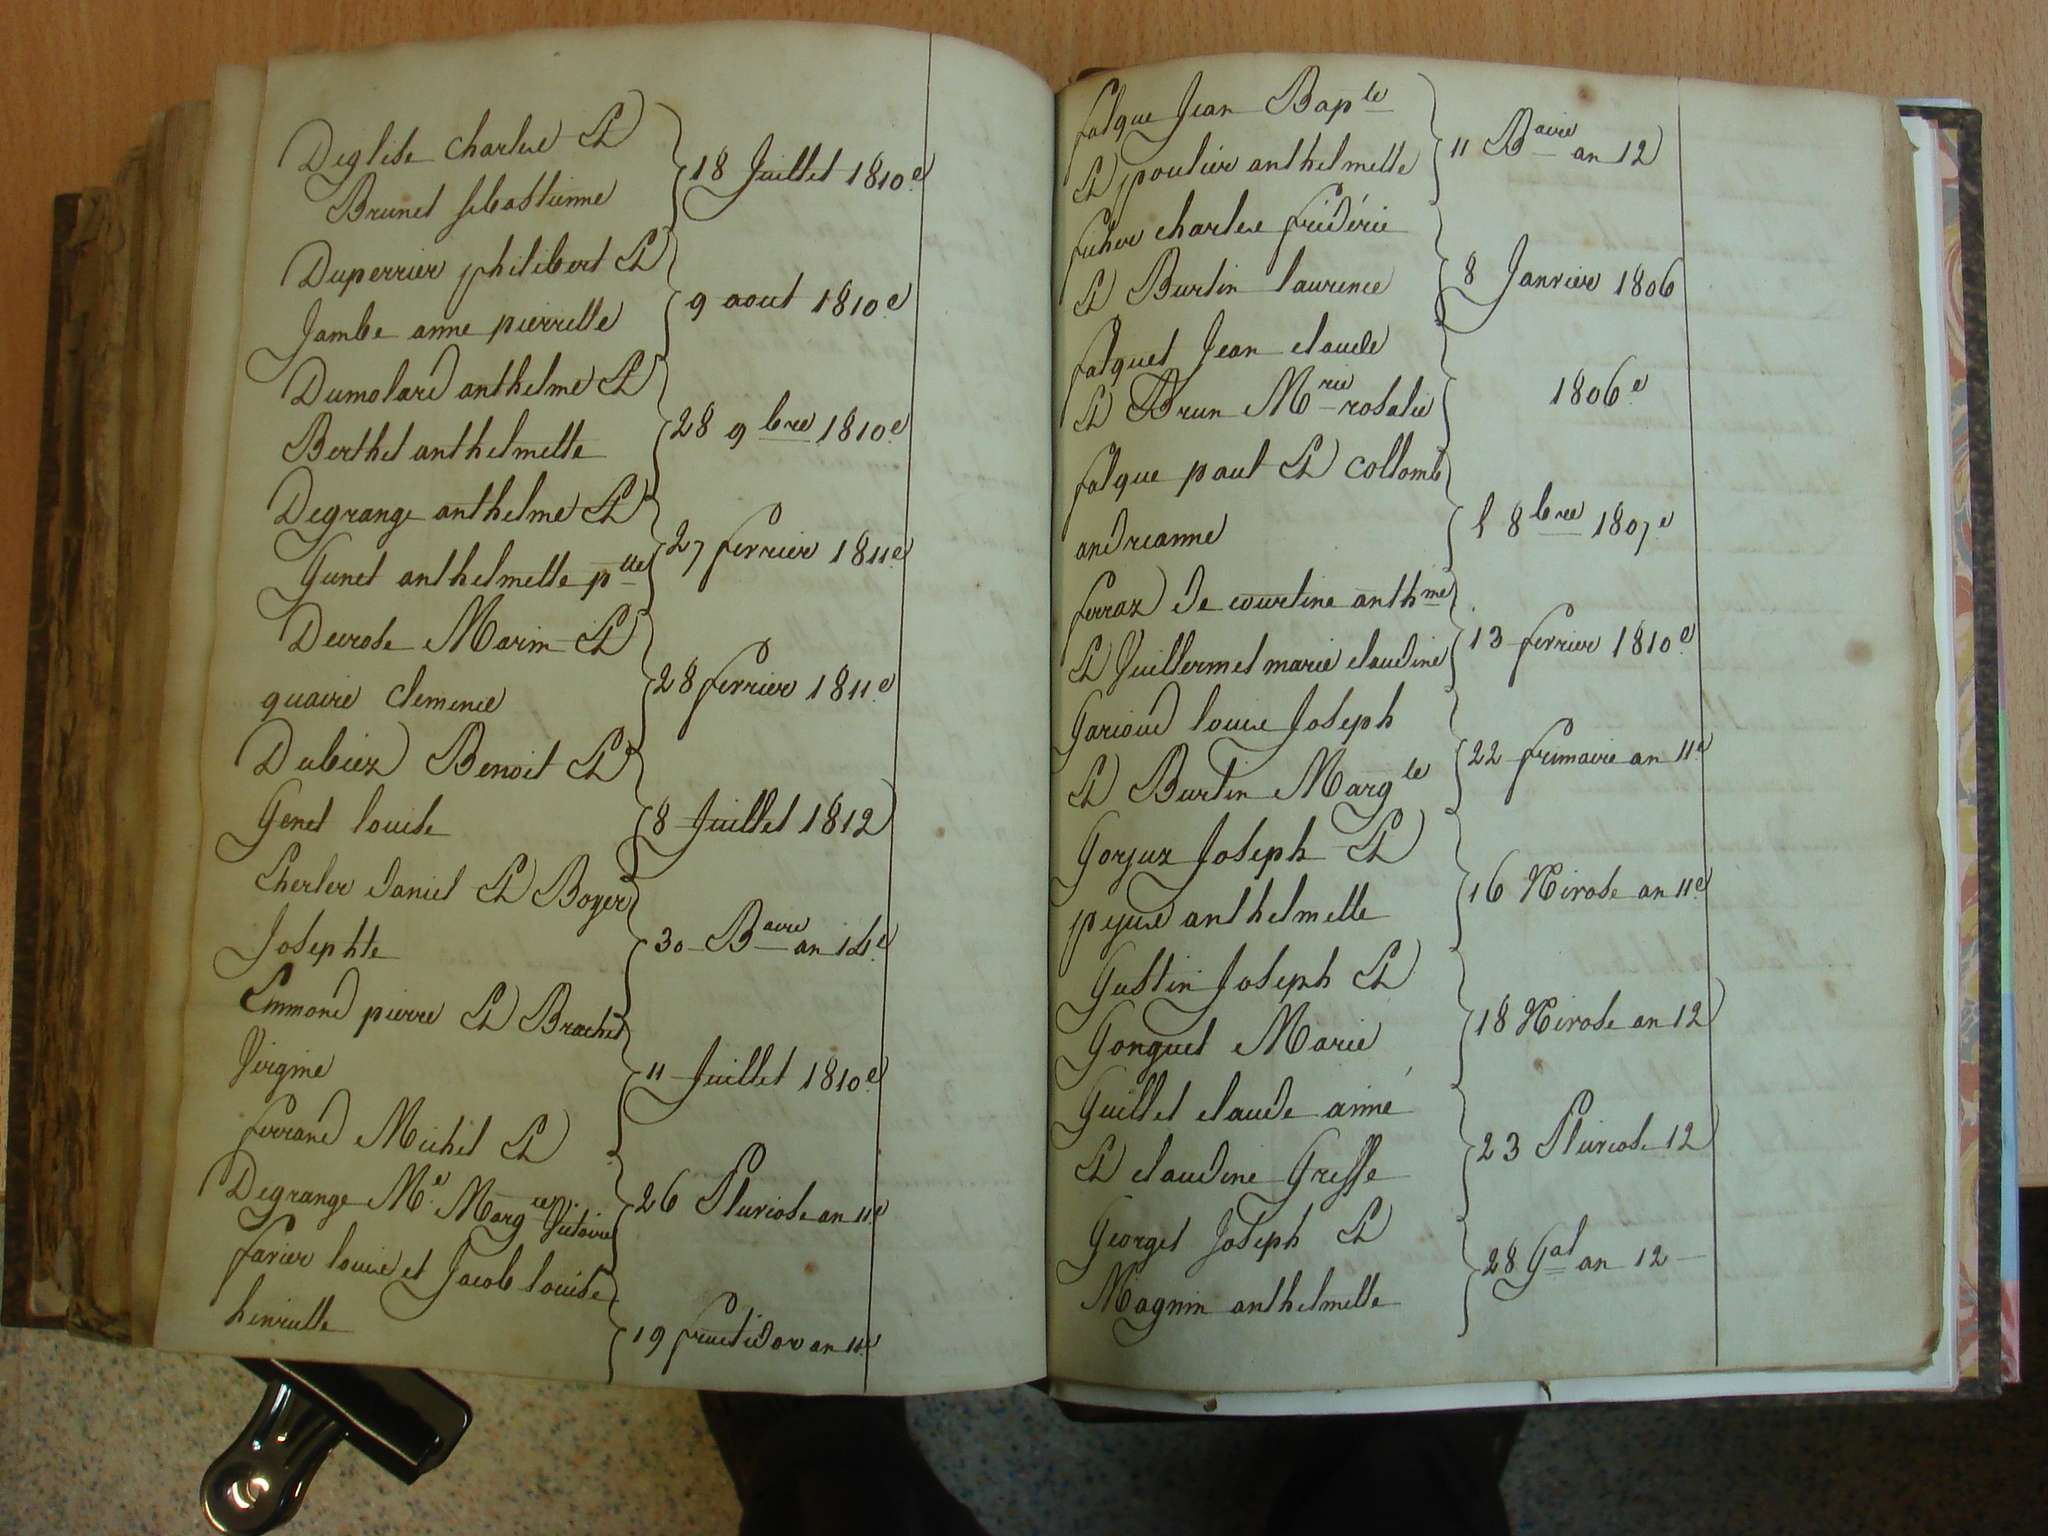 Deglise charles Et
Brunet sebastienne
18 Juillet 1810e
Duperrier philibert Et
Jambe anne pierrette
9 aout 1810e
Dumolard anthelme Et
Berthet anthelmette
28 9bre 1810e
Degrange anthelme Et
Gunet anthelmette ptte
27 fevrier 1811e
Decrose Marin Et
quaire clemence
28 fevrier 1811e
Dubiez Benoit Et
Genet louise
8 Juillet 1812
Eherler daniel Et Boyer
Josephte
30 Baire an 14e
Emmond pierre Et Brachet
Virginie
11 Juillet 1810e
ferrand Michel Et
Degrange Me Margte Victoire
26 Pluviose an 11e
favier louis et Jacob louise
henriette
19 fructidor an 11e
falque Jean Bapte
Et poulier anthelmette
11 Baire an 12
ficher charles frédéric
Et Burtin laurence
8 Janvier 1806
falquet Jean claude
Et Brun Mrie rosalie
1806e
falque paul Et collomb
andreanne
1 8bre 1807e
ferraz de courtine anthme
Et Guillermet marie claudine
13 fevrier 1810e
Garioud louis Joseph
Et Burtin Margte
22 frimaire an 11e
Gorjux Joseph Et
peysse anthelmette
16 Nivose an 11e
Gustin Joseph Et
Gonguet Marie
18 Nivose an 12
Guillet claude aimé
Et claudine Greffe
23 Pluviose 12
Georget Joseph Et
Magnin anthelmette
28 Gal an 12